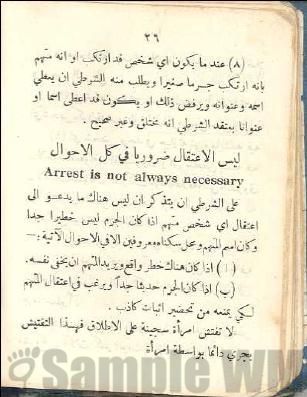 ٢٦
(٨) عند ما يكون اي شخص قد ارتكب او انه متهم
بانه ارتكب جرما صغيرا ويطلب منه الشرطي ان يعطي
اسمه وعنوانه ويرفض ذلك او يكون قد اعطى اسما او
عنوانا يعتقد الشرطي انه مختلق وغير صحيح .
ليس الاعتقال ضروريا في كل الاحوال
Arrest is not always necessary
على الشرطي ان يتذكر ان ليس هناك ما يدعو الى
اعتقال أي شخص متهم اذا كان الجرم ليس خطيرا جدا
وكان اسم المتهم ومحل سكناه معروفين الا في الاحوال الآتية :—
(ا) اذا كان هناك خطر واقع يريد المتهم ان يخفي نفسه.
(ب) اذا كان الجرم حديثا جداً ويرغب في اعتقال المتهم
لكي يمنعه من تحضير اثبات كاذب .
لا تفتش امرأة سجينة على الاطلاق فهذا التفتيش
يجري دائما بواسطة امرأة
Sample WM